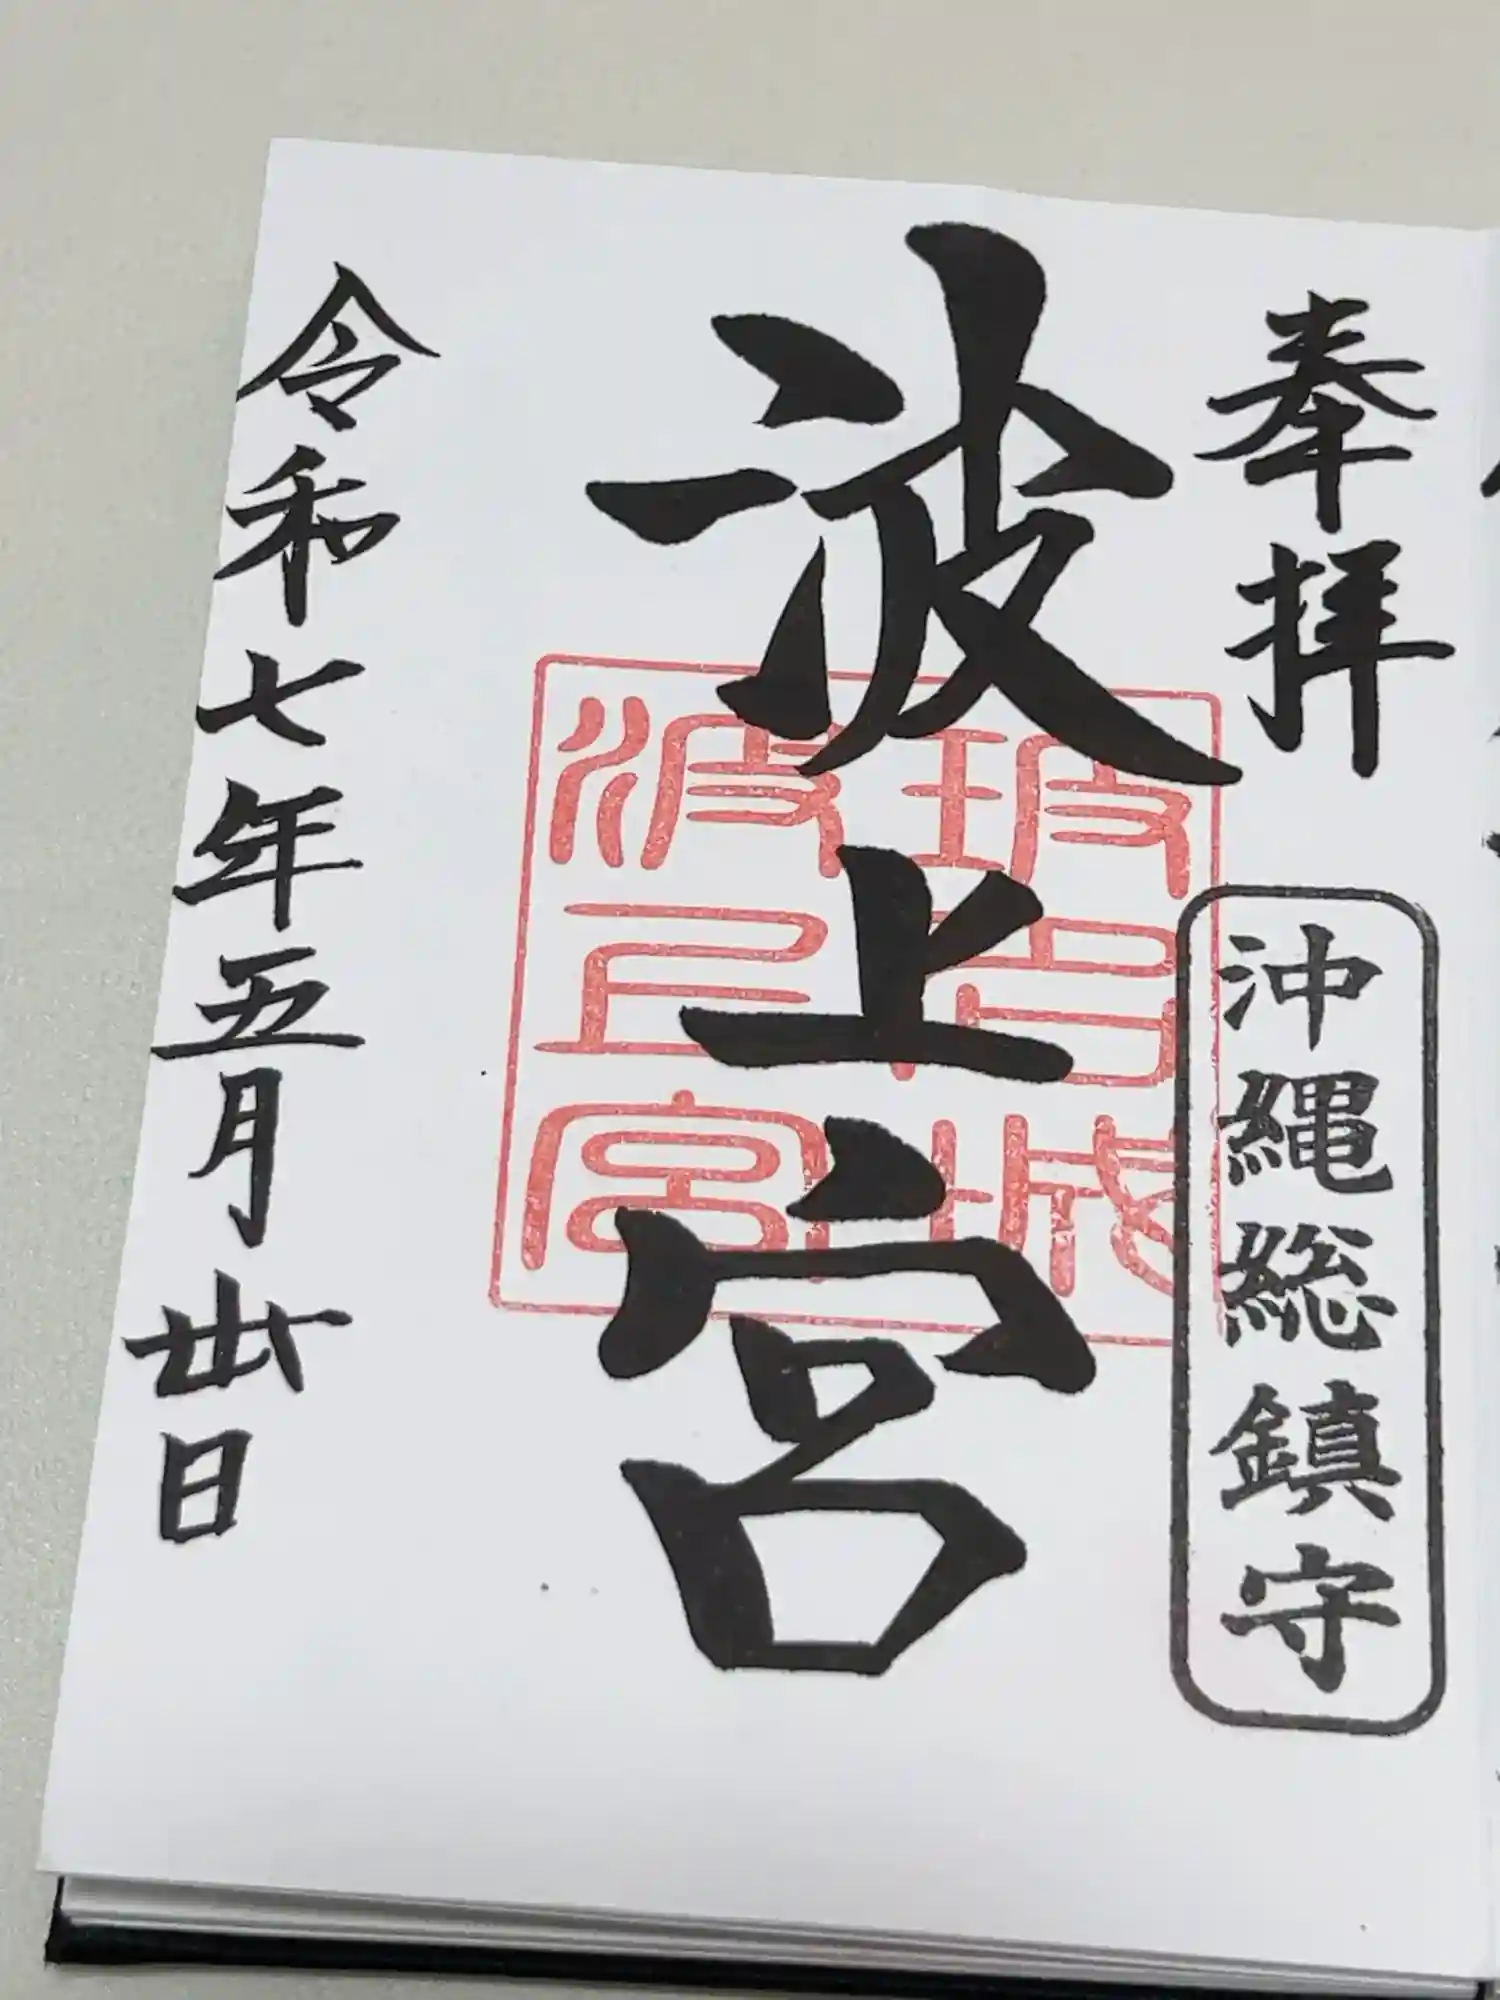 奉拝
沖縄総鎮守
波上宮
玻名城
波上宮
令和七年五月丗日